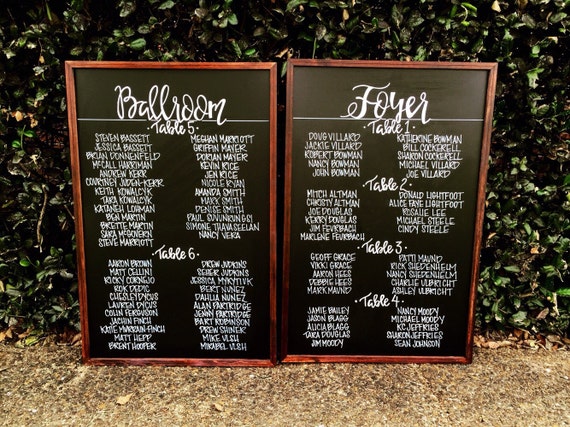 Ballroom
Table 5.
STEVEN BASSETT
JESSICA BASSETT
BRIAN DONNENFELD
MCCALL HARRIMAN
ANDREW KERR
COURTNEY JUDEN-KERR
KEITH KOWALCYK
TARA KOWALCYK
KATANEH LOHMAN
BEN MARTIN
BRETTE MARTIN
SARA MCGOVERN
STEVE MARRIOTT
MEGHAN MARRIOTT
GRIFFIN MAYER
DORIAN MAYER
KEVIN RICE
JEN RICE
NICOLE RYAN
AMANDA SMITH
MARK SMITH
DENISE SMITH
PAUL
SIMONE THAVASEELAN
NANCY VERA
Table 6.
AARON BROWN
MATT CELLINI
RICKY CORNEJO
CHESLEY DYCUS
LAUREN DYCUS
COLIN FERGUSON
JACHIN FINCH
KATIE FINCH
MATT HEPP
BRENT HOOPER
DREW JUDKINS
JUDKINS
JESSICA
BERT NUNEZ
DAHLIA NUNEZ
ALAN PARTRIDGE
JENNY PARTRIDGE
BART ROBINSON
DREW
MIKE VLSH
MIRABEL VLSH
Foyer
Table 1.
DOUG VILLARD
JACKIE VILLARD
ROBERT BOWMAN
NANCY BOWMAN
JOHN BOWMAN
KATHERINE BOWMAN
BILL COCKERELL
SHARON COCKERELL
MICHAEL VILLARD
JOE VILLARD
Table 2.
MITCH ALTMAN
CHRISTY ALTMAN
JOE DOUGLAS
KERRY DOUGLAS
JIM FEVRBACH
MARLENE FEVRBACH
DONALD LIGHTFOOT
ALICE FAYE LIGHTFOOT
ROSALIE LEE
MICHAEL STEELE
CINDY STEELE
Table 3.
GEOFF GRACE
VIKKI GRACE
AARON HEES
DEBBIE HEES
MARK MAUND
PATTI MAUND
RICK SHEDENHELM
NANCY SHEDENHELM
CHARLIE ULBRICHT
ASHLEY ULBRICHT
Table 4.
JAMIE BAILEY
JASON BLAGG
ALICIA BLAGG
TARA DOUGLAS
JIM MOODY
NANCY MOODY
MICHAEL MOODY
KC JEFFRIES
SHARON JEFFRIES
SEAN JOHNSON